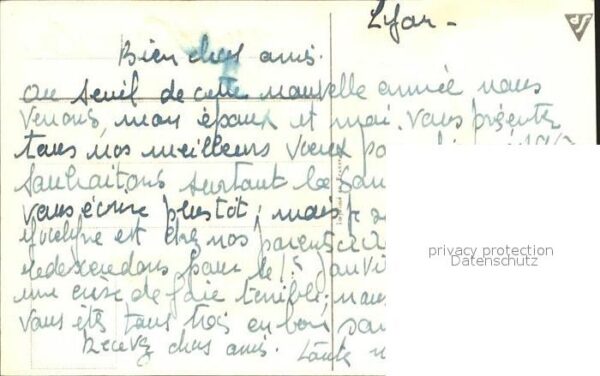 Lyon -
Bien chers amis.
au seuil de cette nouvelle année nous
venons, mon époux et moi. vous présenter
tous nos meilleurs voeux
souhaitons surtout la
vous écrire plustôt ; mais je
Jocelyne et chez nos parents
redescendons pour le 15
une crise de foie terrible, nous
vous êtes tous trois en bon
Recevez chers amis. toute
privacy protection
Datenschutz